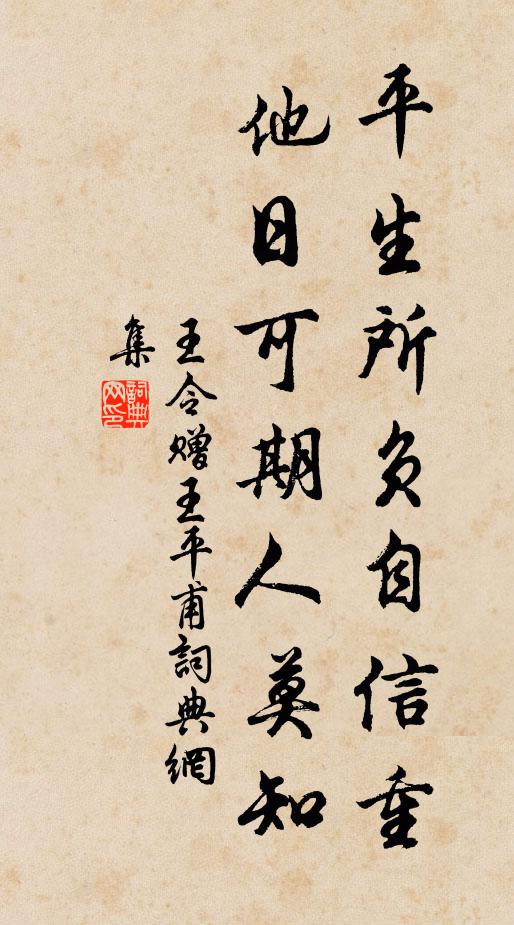 平生所负自信重
他日可期人莫知
王令赠王平甫詞典網
集
詞典網印